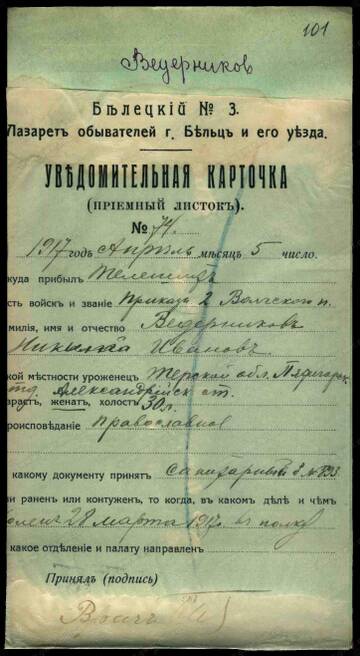 101
Ведерников
Бѣлецкій № 3.
Лазаретъ обывателей г. Бѣльцъ и его уѣзда.
УВѢДОМИТЕЛЬНАЯ КАРТОЧКА
(ПРІЕМНЫЙ ЛИСТОКЪ).
№ 74.
1917 годъ Апрѣль мѣсяцъ 5 число.
куда прибылъ
сть войскъ и званіе 2 Волгского п.
милія, имя и отчество Ведерниковъ
Николай Ивановъ
кой мѣстности уроженецъ Терской обл. Пятигорск
отд. Александрійск ст.
зрастъ, женатъ, холостъ 30 л.
роисповѣданіе православное
какому документу принятъ санитарный
ли раненъ или контуженъ, то когда, въ какомъ дѣлѣ и чѣмъ
болен 28 марта 1917 г. в полку
какое отдѣленіе и палату направленъ
Принялъ (подпись)
Врач